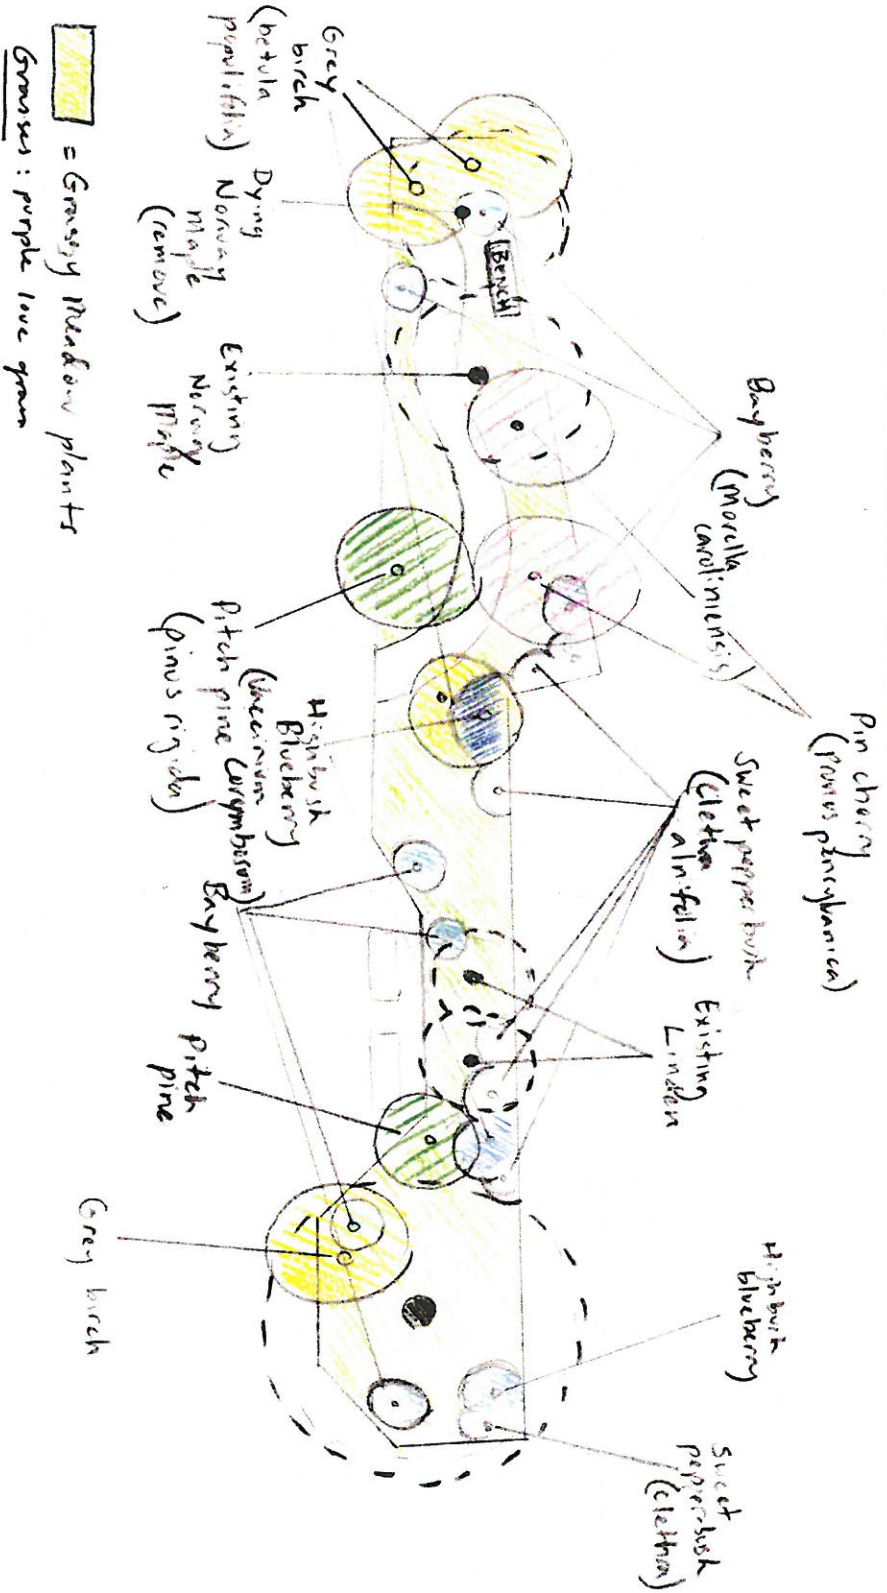 Pin cherry
(prunus pensylvanica)
Bayberry
(Morella
caroliniensis)
Sweet pepperbush
(Clethra
alnifolia)
Existing
Linden
Highbush
blueberry
Sweet
pepperbush
(Clethra)
BENCH
Grey
birch
(betula
populifolia)
Dying
Norway
Maple
(remove)
Existing
Norway
Maple
Pitch pine
(pinus rigida)
Highbush
Blueberry
(Vaccinium
corymbosum)
Bayberry
Pitch
pine
Grey birch
= Grassy Meadow plants
Grasses: purple love grass